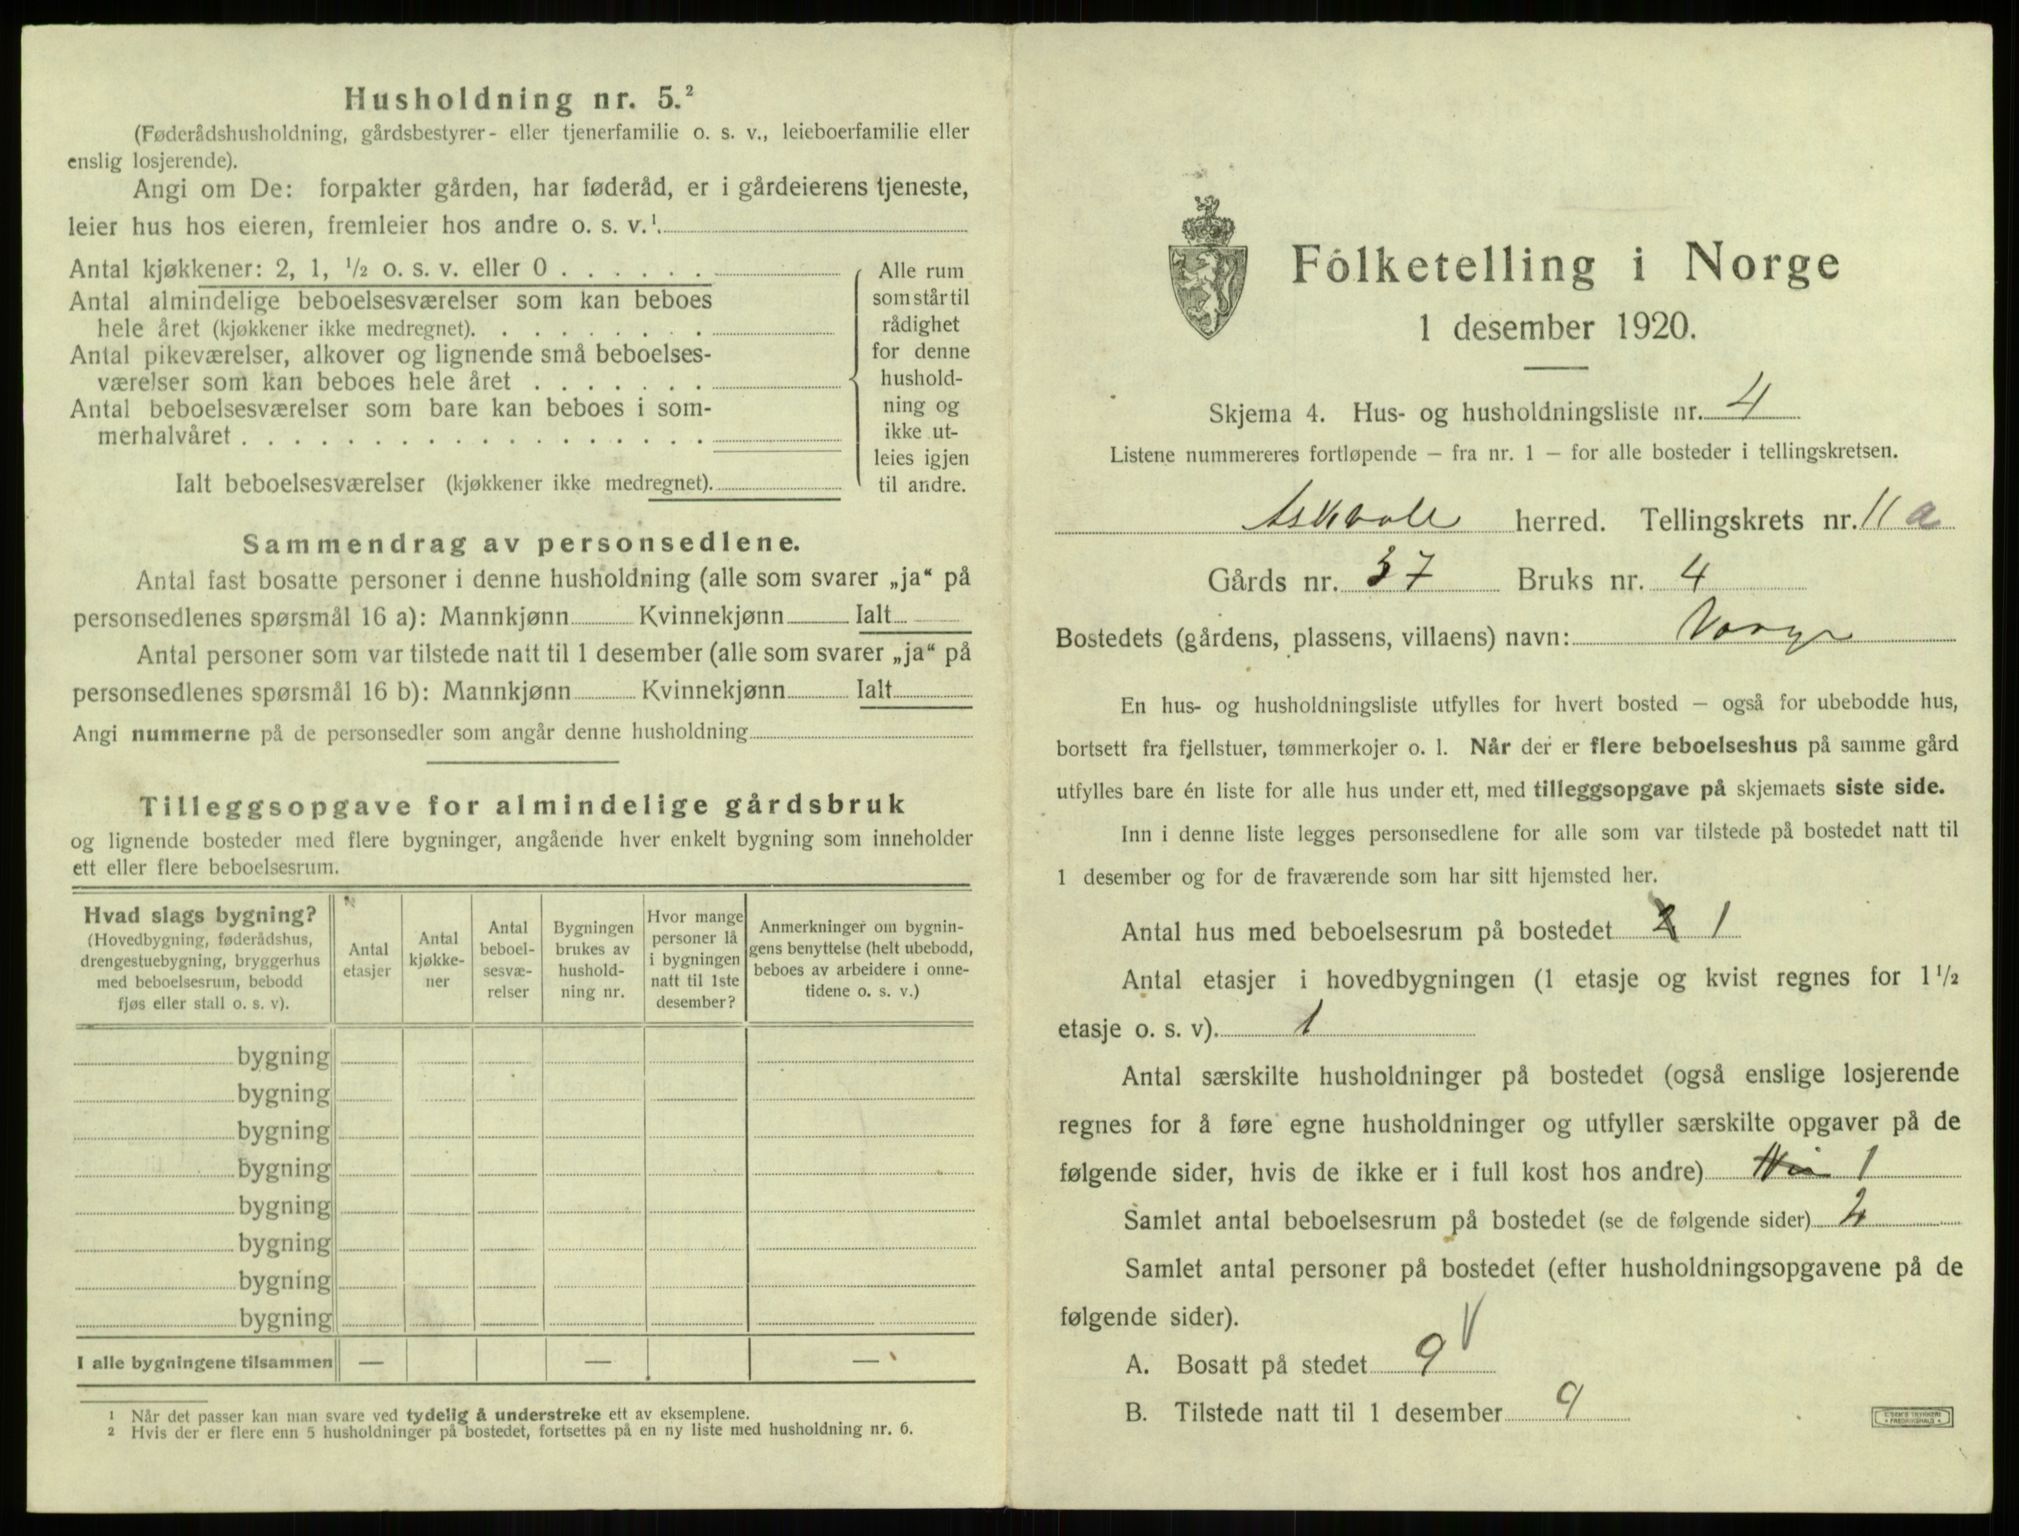 Husholdning nr. 5.²
(Føderådshusholdning, gårdsbestyrer- eller tjenerfamilie o. s. v., leieboerfamilie eller
enslig losjerende).
Angi om De: forpakter gården, har føderåd, er i gårdeierens tjeneste,
leier hus hos eieren, fremleier hos andre o. s. v.¹
Antal kjøkkener: 2, 1, ½ o. s. v. eller 0 . . . . . .
Antal almindelige beboelsesværelser som kan beboes
hele året (kjøkkener ikke medregnet). . . . . . . . .
Antal pikeværelser, alkover og lignende små beboelses-
værelser som kan beboes hele året . . . . . . .
Antal beboelsesværelser som bare kan beboes i som-
merhalvåret . . . . . . . . . . . . . . . . . .
Ialt beboelsesværelser (kjøkkener ikke medregnet).
Alle rum
som står til
rådighet
for denne
hushold-
ning og
ikke ut-
leies igjen
til andre.
Sammendrag av personsedlene.
Antal fast bosatte personer i denne husholdning (alle som svarer „ja“ på
personsedlenes spørsmål 16 a): Mannkjønn Kvinnekjønn Ialt
Antal personer som var tilstede natt til 1 desember (alle som svarer „ja“ på
personsedlenes spørsmål 16 b): Mannkjønn Kvinnekjønn Ialt
Angi nummerne på de personsedler som angår denne husholdning
Tilleggsopgave for almindelige gårdsbruk
og lignende bosteder med flere bygninger, angående hver enkelt bygning som inneholder
ett eller flere beboelsesrum.
Hvad slags bygning?
(Hovedbygning, føderådshus,
drengestuebygning, bryggerhus
med beboelsesrum, bebodd
fjøs eller stall o. s. v).
Antal
etasjer
Antal
kjøkke-
ner
Antal
beboel-
sesvæ-
relser
Bygningen
brukes av
hushold-
ning nr.
Hvor mange
personer lå
i bygningen
natt til 1ste
desember?
Anmerkninger om bygnin-
gens benyttelse (helt ubebodd,
beboes av arbeidere i onne-
tidene o. s. v.)
bygning
bygning
bygning
bygning
bygning
bygning
bygning
bygning
I alle bygningene tilsammen — — —
¹ Når det passer kan man svare ved tydelig å understreke ett av eksemplene.
² Hvis der er flere enn 5 husholdninger på bostedet, fortsettes på en ny liste med husholdning nr. 6.
Folketelling i Norge
1 desember 1920.
Skjema 4. Hus- og husholdningsliste nr. 4
Listene nummereres fortløpende — fra nr. 1 — for alle bosteder i tellingskretsen.
Askvoll herred. Tellingskrets nr. 11 a
Gårds nr. 37 Bruks nr. 4
Bostedets (gårdens, plassens, villaens) navn:
En hus- og husholdningsliste utfylles for hvert bosted — også for ubebodde hus,
bortsett fra fjellstuer, tømmerkojer o. l. Når der er flere beboelseshus på samme gård
utfylles bare én liste for alle hus under ett, med tilleggsopgave på skjemaets siste side.
Inn i denne liste legges personsedlene for alle som var tilstede på bostedet natt til
1 desember og for de fraværende som har sitt hjemsted her.
Antal hus med beboelsesrum på bostedet 2 1
Antal etasjer i hovedbygningen (1 etasje og kvist regnes for 1½
etasje o. s. v). 1
Antal særskilte husholdninger på bostedet (også enslige losjerende
regnes for å føre egne husholdninger og utfyller særskilte opgaver på de
følgende sider, hvis de ikke er i full kost hos andre) 1
Samlet antal beboelsesrum på bostedet (se de følgende sider) 2
Samlet antal personer på bostedet (efter husholdningsopgavene på de
følgende sider).
A. Bosatt på stedet 9
B. Tilstede natt til 1 desember 9